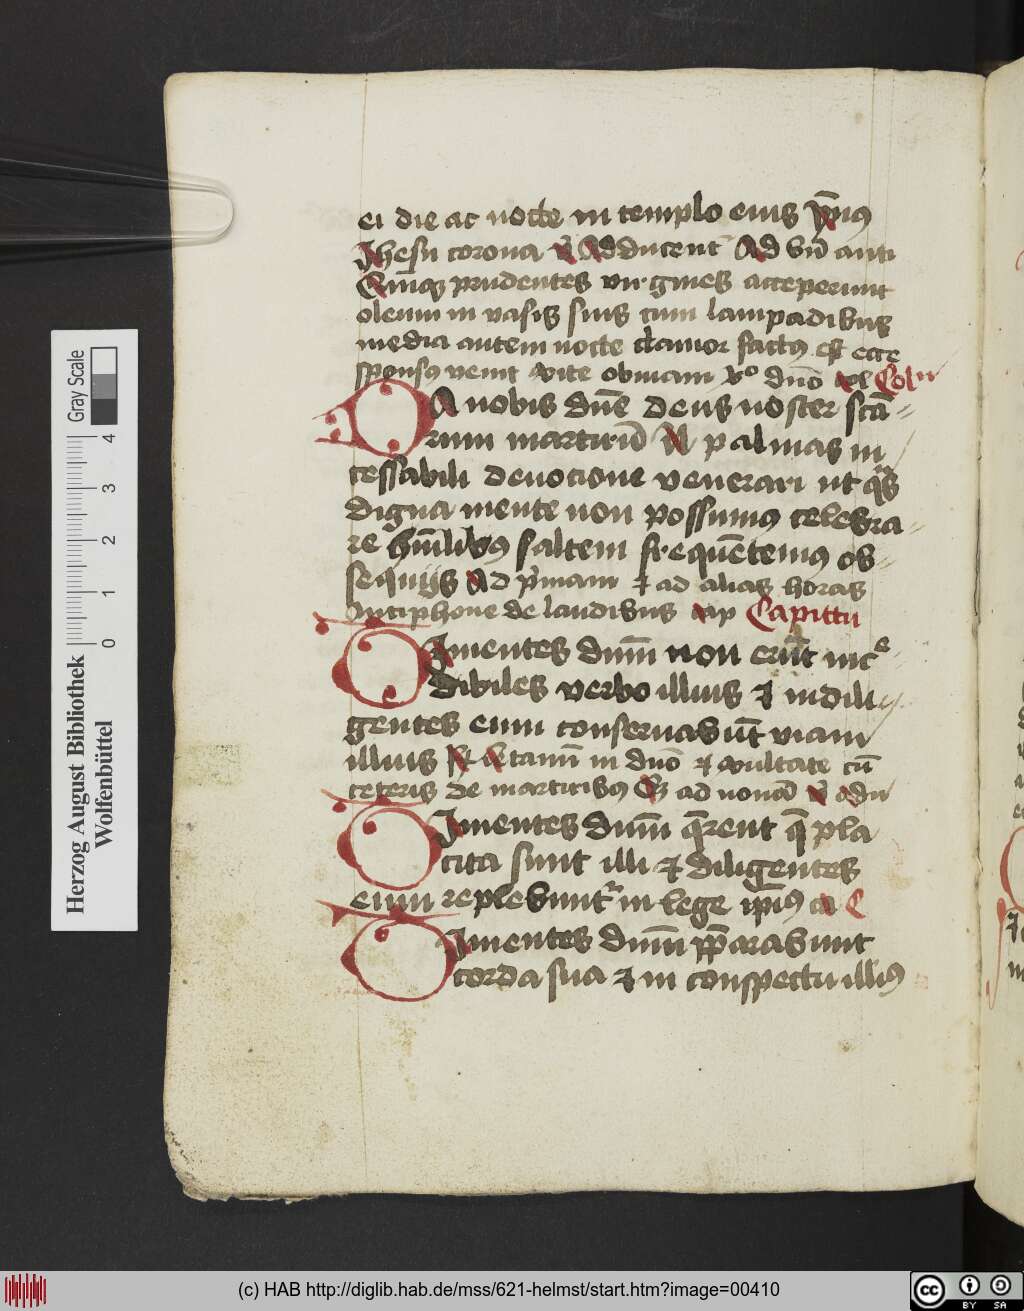 ei die ac nocte in templo eius ẏmnꝯ
Jhesu corona v̄ Adducent̄ Ad bn̄ anti
Quinqꝫ prudentes virgines acceperunt
oleum in vasis suis cum lampadibus
media autem nocte clamor factꝯ est ecce
sponsꝯ venit exite obviam xͦ dno̅ Col
DA nobis dn̄e deus noster scā
rum martirū N palmas in
cessabili deuocione venerari ut qͣs
digna mente non possumꝯ celebra
re hūilibꝯ saltem frequētemꝯ ob
sequijs Ad pͥmam ⁊ ad alias horas
Antiphone de laudibus Capittu
Timentes dnm̄ non erūt incͤ
dibiles verbo illius ⁊ in dili
gentes eum conseruabūt viam
illius letamī in dno̅ ⁊ exultate cū
ceteris de martiribꝯ ad nonā v̄ adiu
Timentes dnm̄ q̄rent q̄ pla
cita sunt illi ⁊ diligentes
eum replebuntͬ in lege ip̄iꝯ
Timentes dnm̄ p̄parabunt
corda sua ⁊ in conspectu illiꝯ
Herzog August Bibliothek
Wolfenbüttel
Gray Scale
0 1 2 3 4
(c) HAB http://diglib.hab.de/mss/621-helmst/start.htm?image=00410
cc BY SA